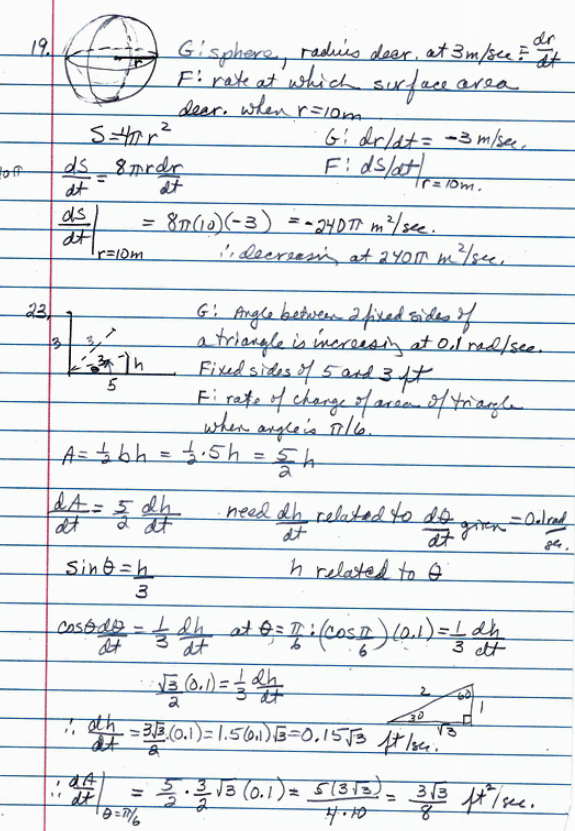 19. G: sphere, radius decr. at 3m/sec = dr/dt
r
F: rate at which surface area
decr. when r=10m
S=4πr² G: dr/dt = -3 m/sec.
dS/dt = 8πr dr/dt F: dS/dt|r=10m.
dS/dt|r=10m = 8π(10)(-3) = -240π m²/sec.
∴ decreasing at 240π m²/sec.
23. G: Angle between 2 fixed sides of
a triangle is increasing at 0.1 rad/sec.
3 3 3 θ h
5
Fixed sides of 5 and 3 ft
F: rate of change of area of triangle
when angle is π/6.
A = ½bh = ½·5h = 5/2 h
dA/dt = 5/2 dh/dt need dh/dt related to dθ/dt given = 0.1 rad/sec.
sinθ = h/3 h related to θ
cosθ dθ/dt = 1/3 dh/dt at θ = π/6 : (cos π/6)(0.1) = 1/3 dh/dt
√3/2 (0.1) = 1/3 dh/dt
2 60 1 30 √3
∴ dh/dt = 3√3/2 .(0.1) = 1.5(0.1)√3 = 0.15√3 ft/sec.
∴ dA/dt|θ=π/6 = 5/2 · 3/2 √3 (0.1) = 5(3√3)/4·10 = 3√3/8 ft²/sec.